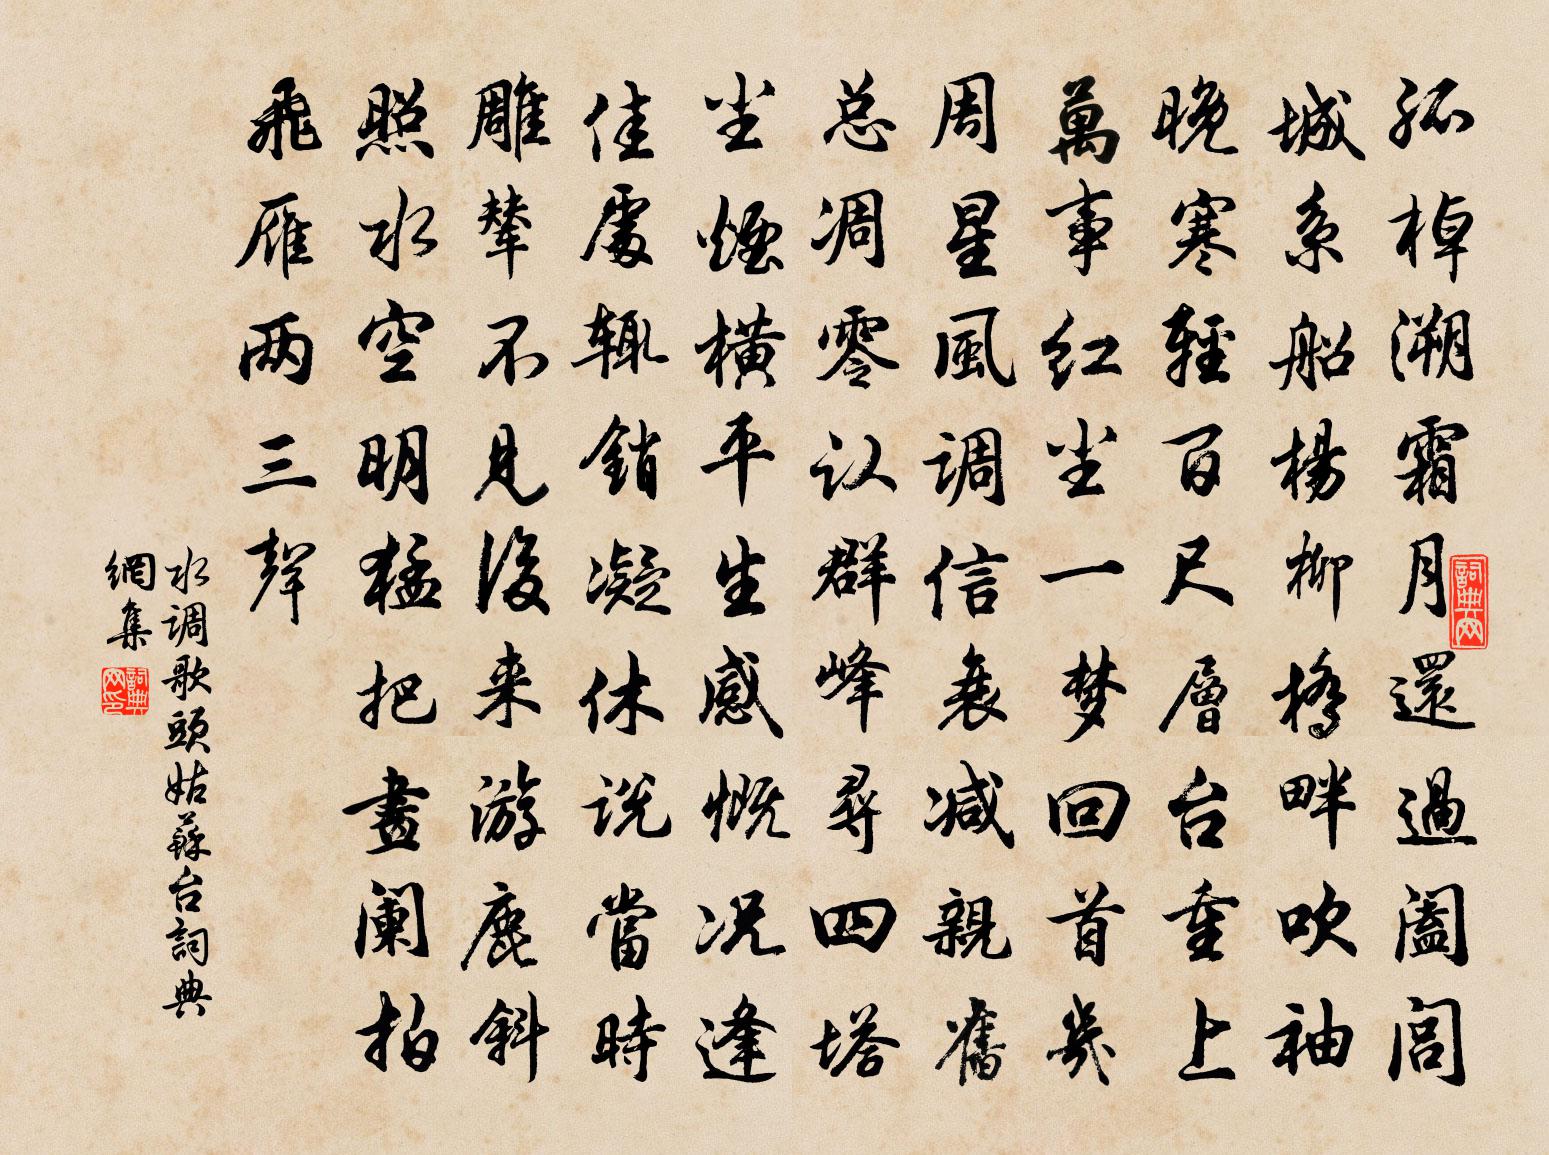 孤棹溯霜月還過闔閭
城系船楊柳橋畔吹袖
晚寒輕百尺層台重上
萬事红尘一梦回首幾
周星風调信衰减親舊
总凋零认群峰尋四塔
尘煙横平生感慨况逢
佳處辄銷凝休说當時
雕輦不見後来游鹿斜
照水空明猛把畫阑拍
飛雁两三聲
水调歌頭姑蘇台詞典
網集
詞典网
詞典网印